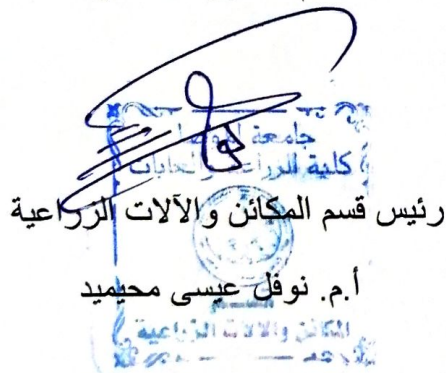 جامعة الموصل
كلية الزراعة والغابات
رئيس قسم المكائن والآلات الزراعية
أ.م. نوفل عيسى محيميد
المكائن والآلات الزراعية